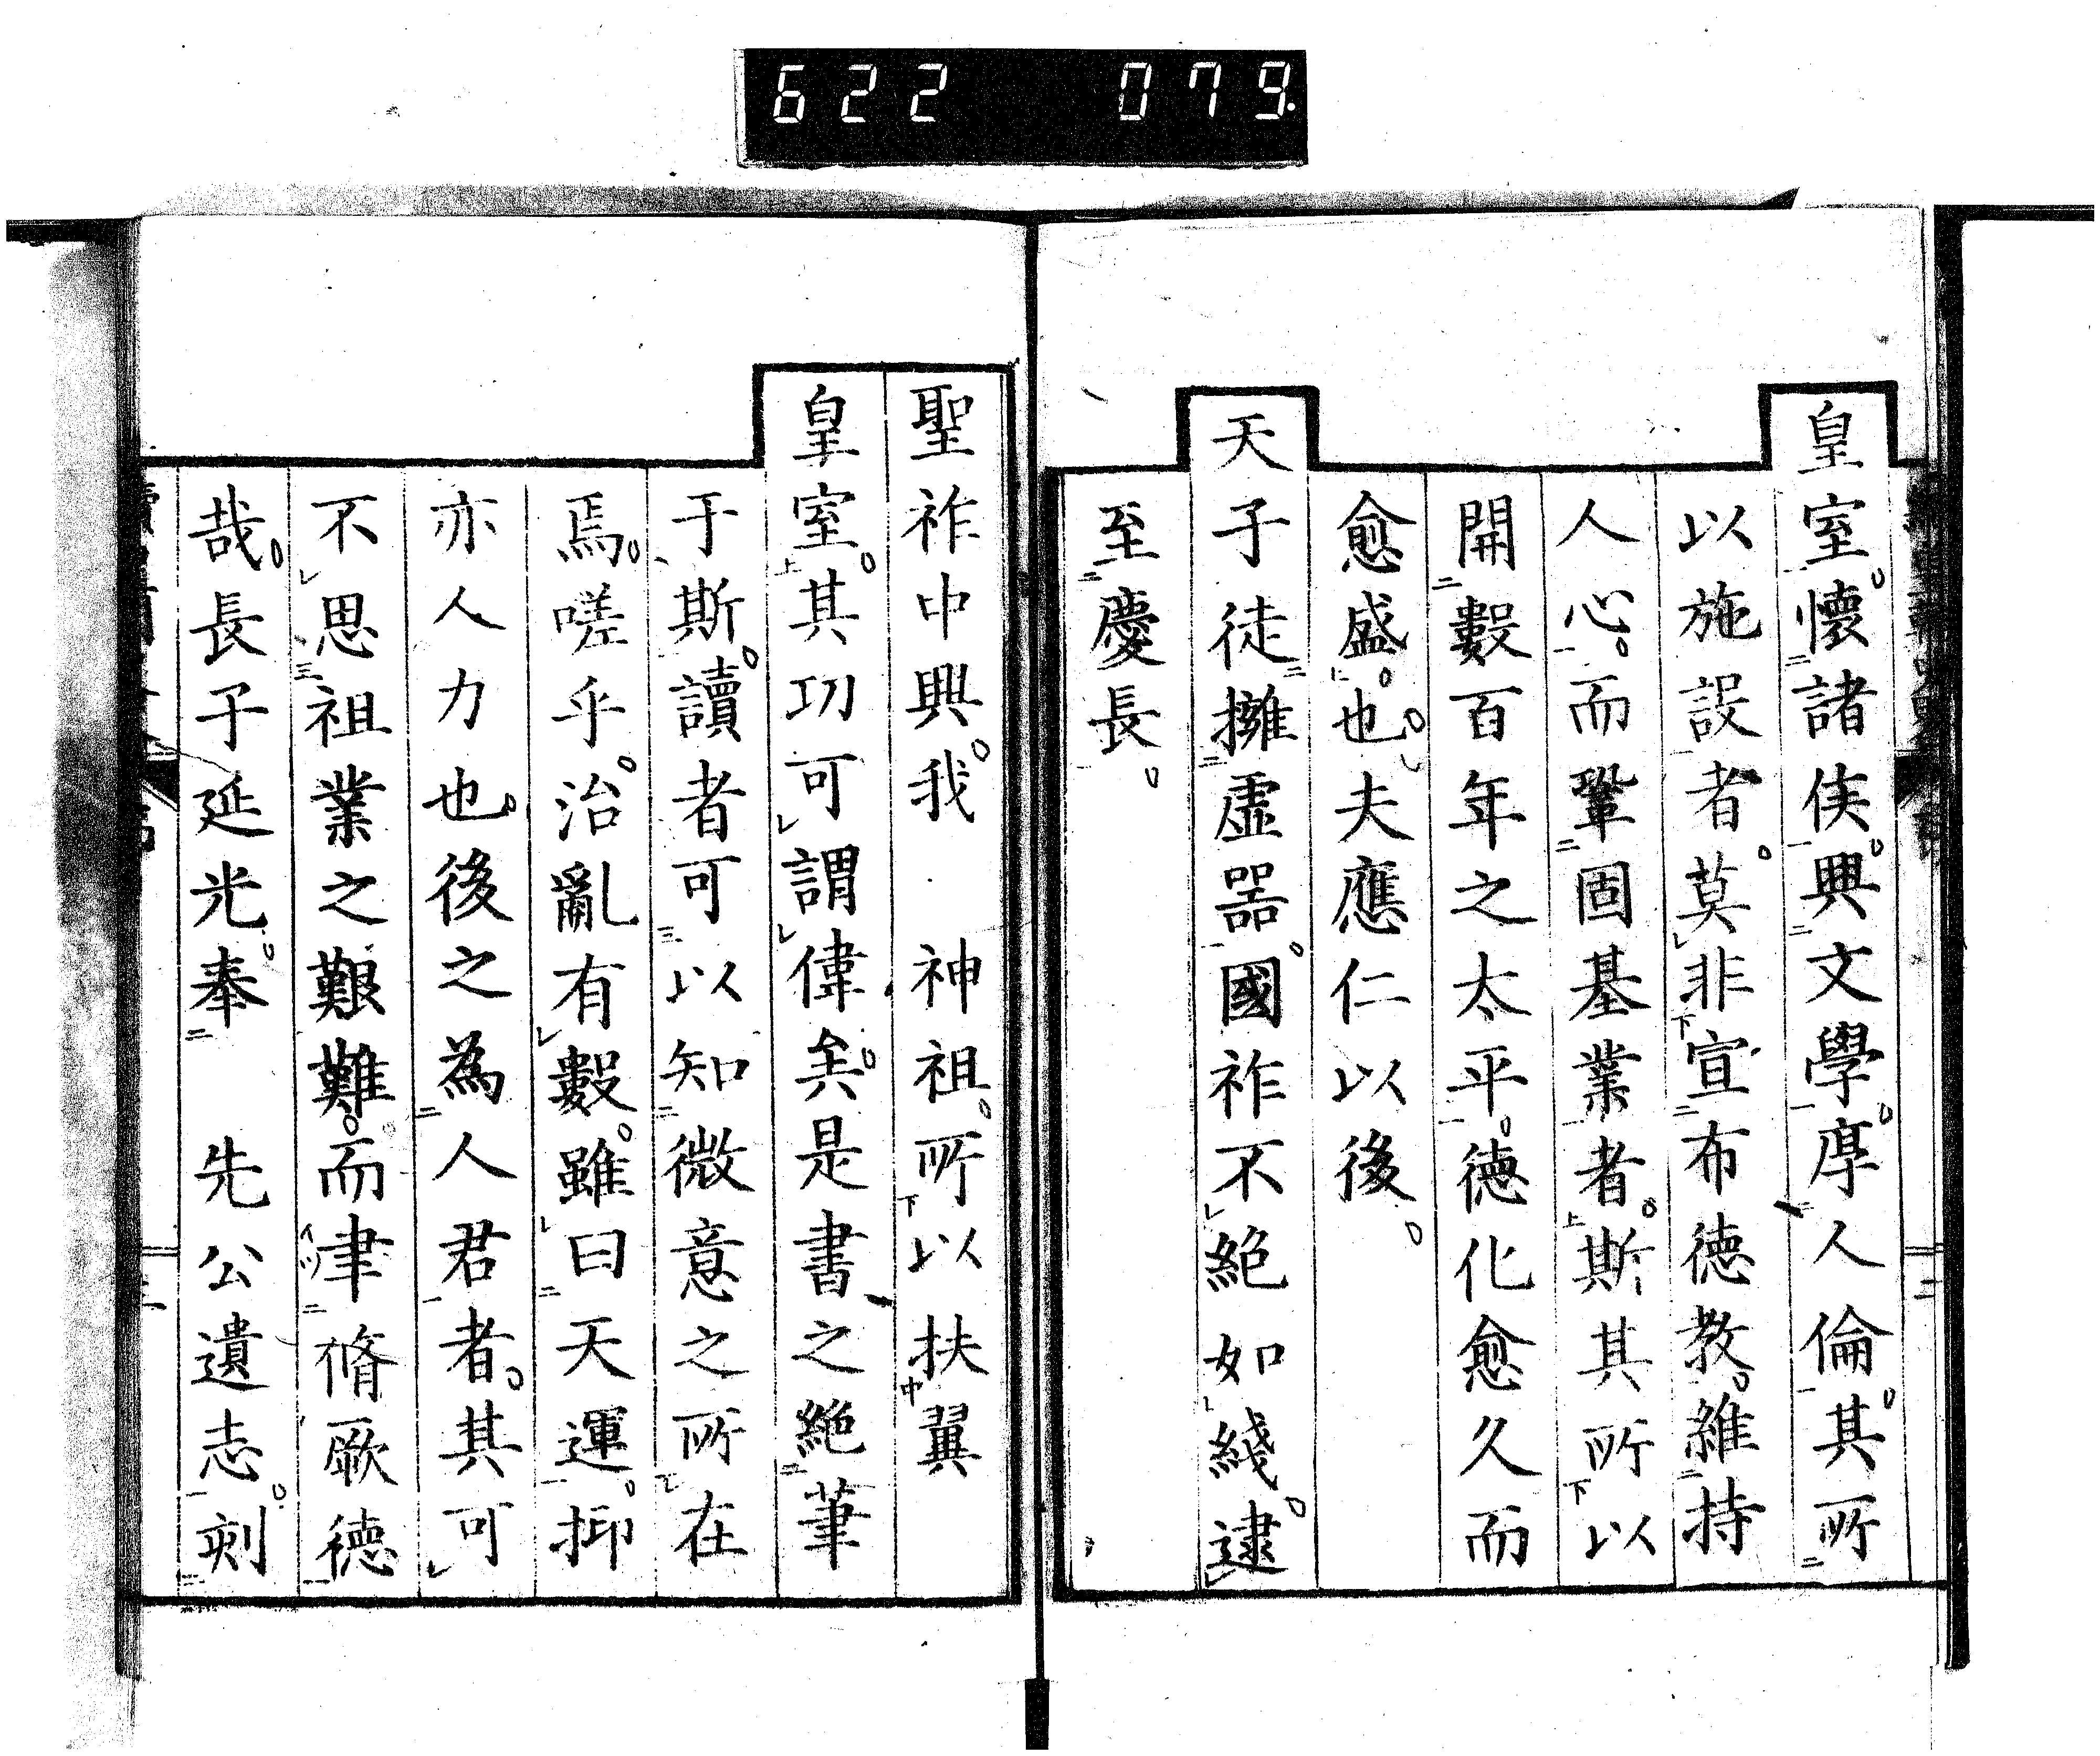 622 079.
皇室懷諸侯興文學厚人倫其所
以施設者莫非宣布德教維持
人心而鞏固基業者斯其所以
開數百年之太平德化愈久而
愈盛也夫應仁以後
天子徒擁虛器國祚不絕如綫逮
至慶長
聖祚中興我　神祖所以扶翼
皇室其功可謂偉矣是書之絕筆
于斯讀者可以知微意之所在
焉嗟乎治亂有數雖曰天運抑
亦人力也後之為人君者其可
不思祖業之艱難而聿脩厥德
哉長子延光奉　先公遺志刻